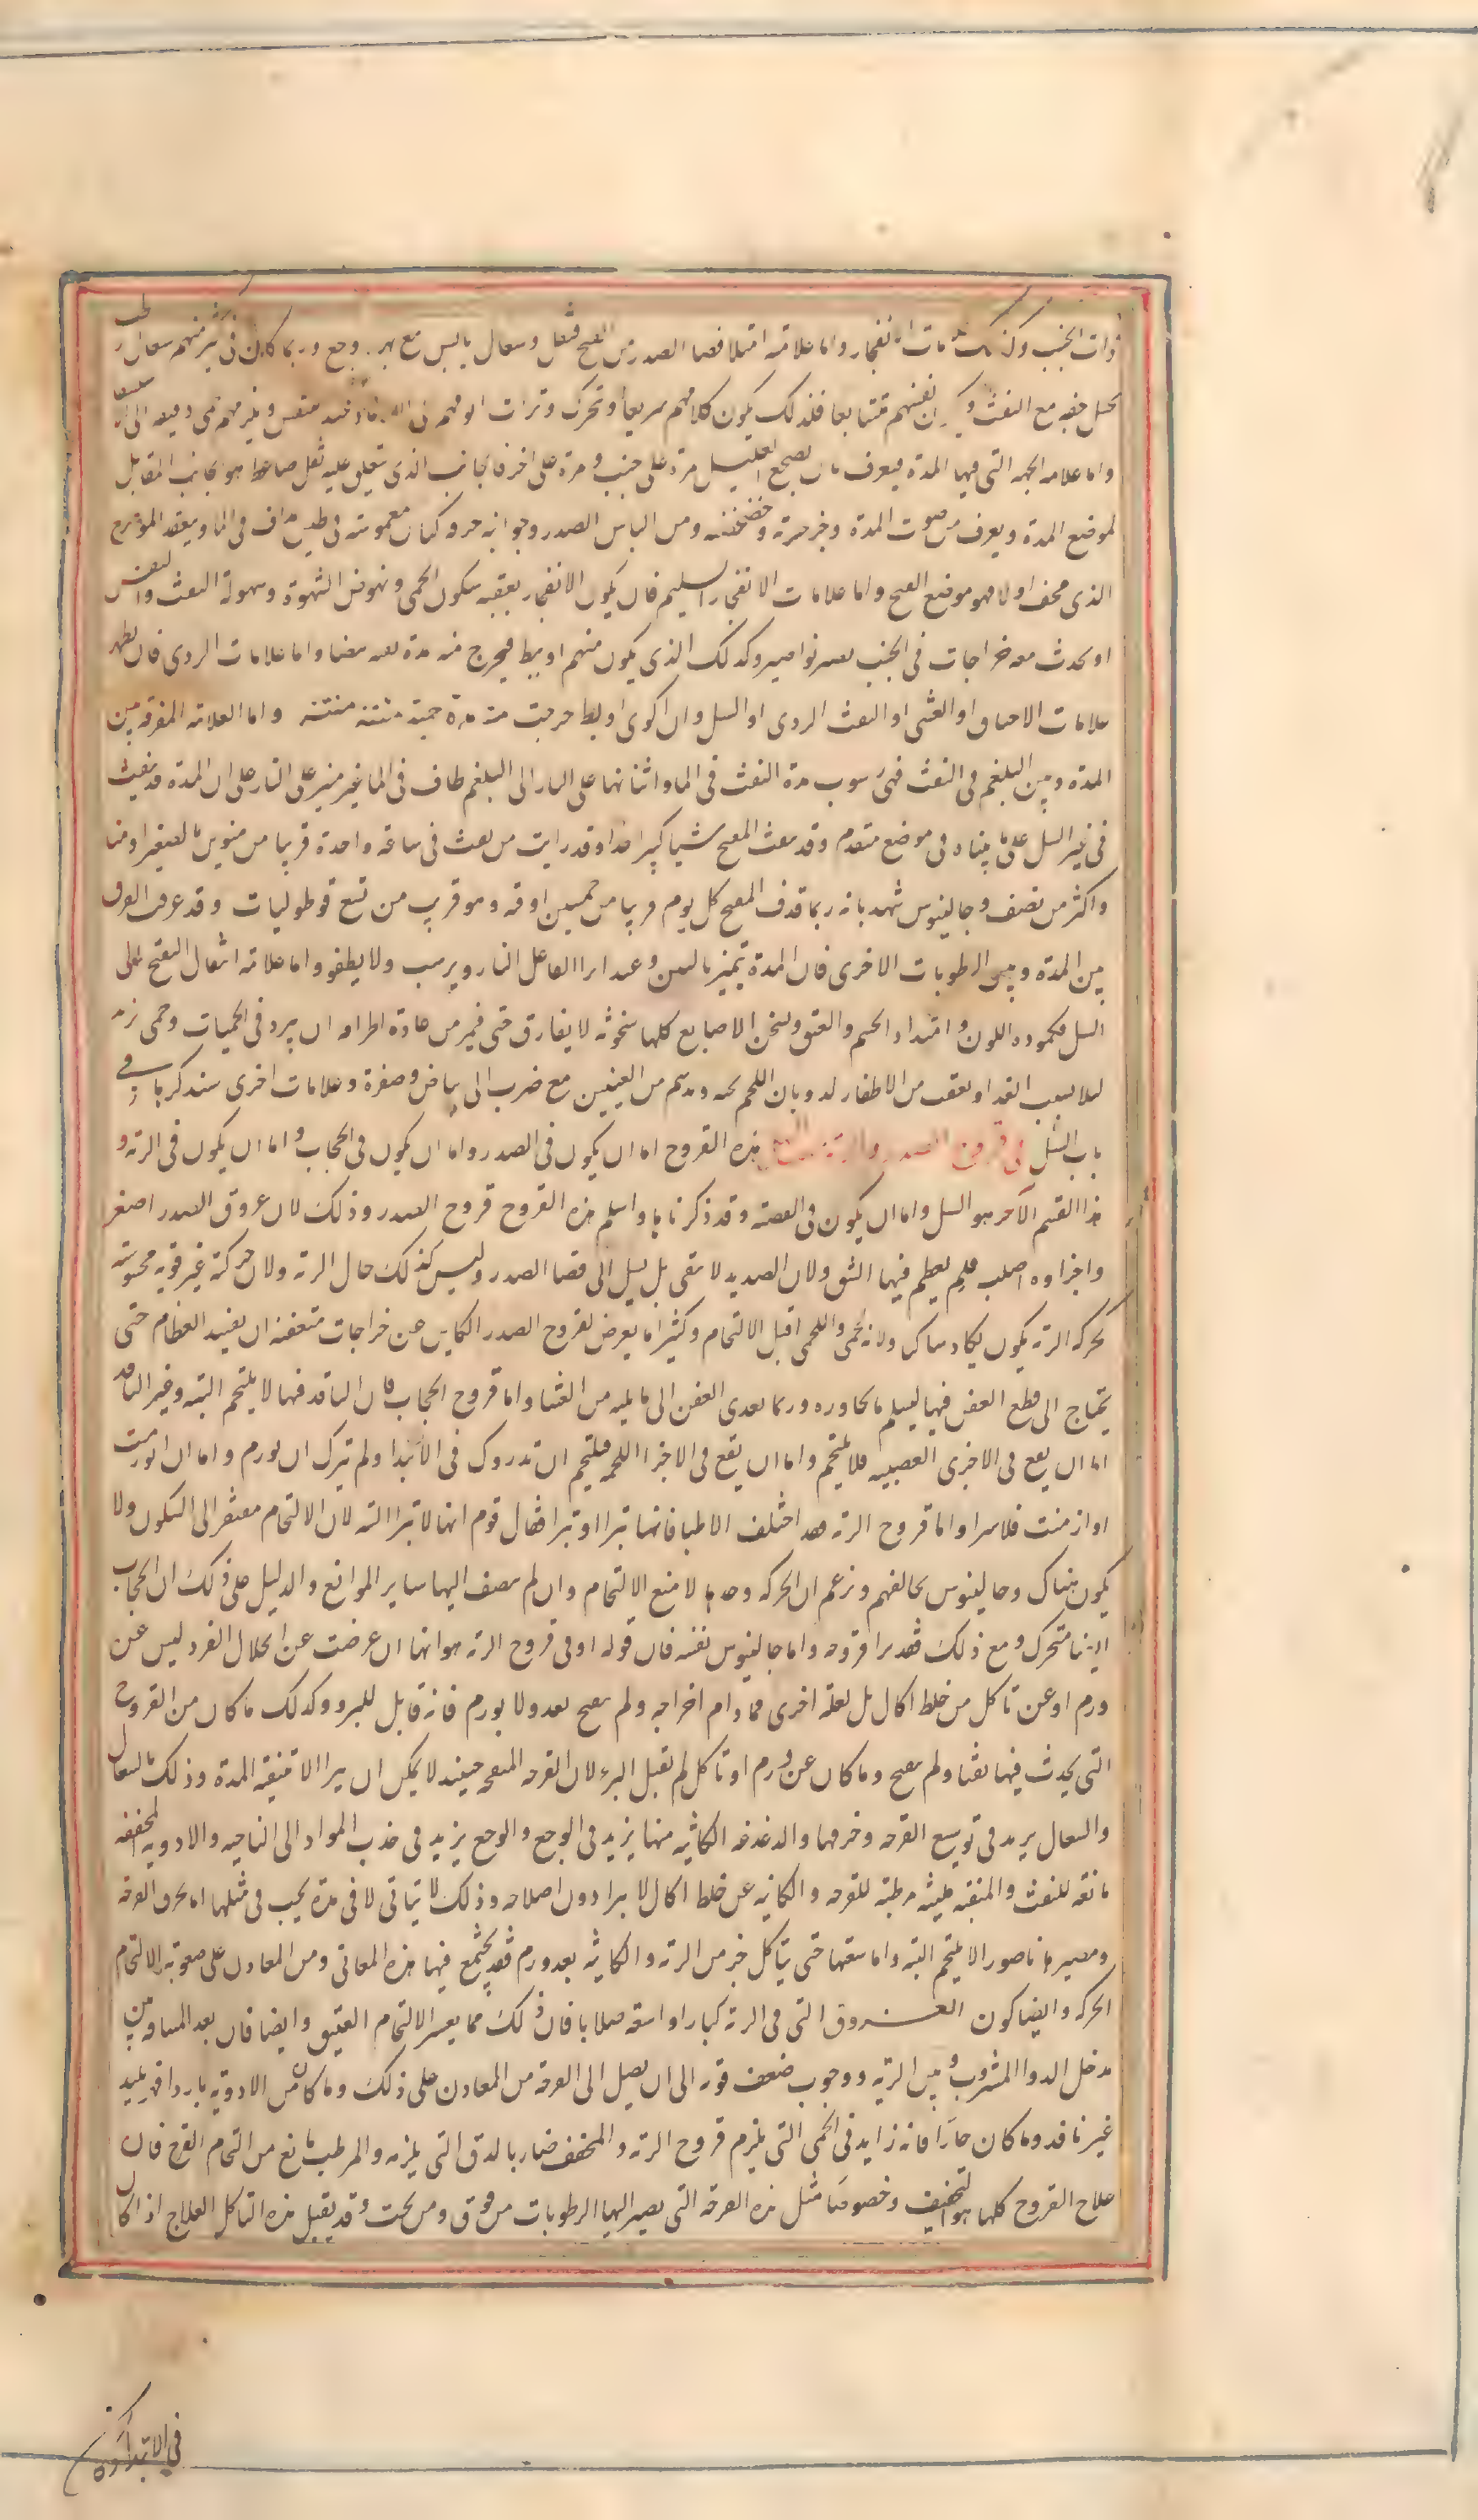 ذات الجنب وكذلك علامات الانفجار واما علامة امتلا فضا الصدر من القيح فثقل وسعال يابس مع بهر ووجع وربما كان في كثير منهم سعال رطب
يخيل خفه مع النفث ويكون نفسهم متتابعا فلذلك يكون كلامهم سريعا وتحرك وترات انوفهم الى عند التنفس ويلزمهم حمى دقيقه الى
واما علامه الجهه التي فيها المدة فيعرف بان يضجع العليل مرة على جنب ومرة على اخر فالجانب الذي يتعلق عليه ثقل ضاغط هو الجانب المقابل
لموضع المدة ويعرف من صوت المدة وخرخرته وخضخضته ومن الباس الصدر وجوانبه خرقه كتان مغموسته في طين مداف في الما ويتفقد الموضع
الذي يجف اولا فهو موضع القيح واما علامات الانفجار السليم فان يكون الانفجار يعقبه سكون الحمى ونهوض الشهوة وسهولة النفث والنفس
او يحدث معه خراجات في الجنب تصير نواصير وكذلك الذي يكون منهم او يبط فيخرج منه مدة نقيه بيضا واما علامات الردي فان يظهر
علامات الاختناق او الغشى او النفث الردي او السل وان اكوى او بط خرجت منه مدة حمية منتنة واما العلامة المفرقه بين
المدة وبين البلغم في النفث فهي رسوب مدة النفث في الما وانتانها على النار الى البلغم طاف في الما غير منتن على النار على ان المدة قد ينفث
في غير السل على ما بيناه في موضع متقدم وقد ينفث المتقيح شيا كثيرا جدا وقد رايت من نفث في ساعة واحدة قريبا من منوين بالصغير او منا
واكثر من نصف وجالينوس شهد بانه ربما قذف المتقيح كل يوم قريبا من خمسين اوقه وهو قريب من تسع قوطوليات وقد عرف الفرق
بين المدة وبين الرطوبات الاخرى فان المدة تتميز بالنتن وعند القاها على النار ويرسب ولا يطفو واما علامة انتقال التقيح الى
السل فكمودة اللون وامتداد الجسم والعنق وتسخن الاصابع كلها سخونة لا يفارق حتى فيمن من عادة اطرافه ان يبرد في الحميات وحمى تزيد
ليلا بسبب الغذا وتعقف من الاظفار لذوبان اللحم تحته وتدسم من العينين مع ضرب الى بياض وصفرة وعلامات اخرى سنذكرها في
باب السل في قروح الصدر والرية هذه القروح اما ان يكون في الصدر واما ان يكون في الحجاب واما ان يكون في الرية و
هذا القسم الآخر هو السل واما ان يكون في القصبة وقد ذكرناها واسلم هذه القروح قروح الصدر وذلك لان عروق الصدر اصغر
واجزاوه اصلب فلم يعظم فيها الشق ولان الصديد لا يبقى بل يسيل الى فضا الصدر وليس كذلك حال الرية ولان حركته غير قويه محسوسة
كحركه الرية يكون يكاد ساكن ولانه لحمى واللحمى اقبل للالتحام وكثيرا ما يعرض لقروح الصدر الكاين عن خراجات متعفنه ان يفسد العظام حتى
يحتاج الى قطع العفن فيها ليسلم ما يجاوره وربما تعدى العفن الى ما يليه من الغشا واما قروح الحجاب فان النافذ فيها لا يلتحم البته وغير النافذ
اما ان يقع في الاجزا العصبيه فلا يلتحم واما ان يقع في الاجزا اللحميه فيلتحم ان تدورك في الابتدا ولم يترك ان يورم واما ان تورمت
او ازمنت فلا يبرا واما قروح الرية فقد اختلف الاطبا فانها تبرا او لا تبرا فقال قوم انها لا تبرا البته لان الالتحام مفتقر الى السكون ولا
يكون هناك وجالينوس يخالفهم ويزعم ان الحركه وحدها لا تمنع الالتحام وان لم يضف اليها ساير الموانع والدليل على ذلك ان الحجاب
ايضا متحرك ومع ذلك فقد يبرا قروحه واما جالينوس نفسه فان قوله اوفى قروح الرية هو انها ان عرضت عن انحلال الفرد ليس عن
ورم او عن تاكل من خلط اكال بل لعلة اخرى فما دام لم يتقيح بعد ولا يورم فانه قابل للبرو وكذلك ما كان من القروح
التي يحدث فيها نفثا ولم يتقيح وما كان عن ورم او تاكل لم يقبل البرء لان القرحه المتقيحه حينئذ لا يمكن ان يبرا الا بتنقية المدة وذلك بالسعال
والسعال يزيد في توسيع القرحه وخرقها والدغدغه الكائنه منها يزيد في الوجع والوجع يزيد في جذب المواد الى الناحيه والادويه المجففه
مانعه للنفث والمنقيه مليّنه مرطبة للقرحه والكاينه عن خلط اكال لا يبرا دون اصلاحه وذلك لا يتاتى الا في مدة يجب في مثلها اما تخرق القرحه
ومصيرها ناصورا لا يلتحم البته واما سعتها حتى يتاكل جزء من الرية والكاينه بعد ورم فقد يجتمع فيها هذه المعاني ومن المعاون على صعوبة الالتحام
الحركه وايضا كون العروق التي في الرية كبارا واسعة صلابا فان ذلك مما يعسر الالتحام الفتيق وايضا فان بعد المسافه بين
مدخل الدوا المشروب وبين الريه ووجوب ضعف قوته الى ان يصل الى القرحة من المعاون على ذلك وما كان من الادويه باردا فهو بليد
غير نافذ وما كان حارا فانه زايد في الحمى التي يلزم قروح الرية والمجفف ضار بالدق التي يلزمه والمرطب مانع من التحام القرح فان
علاج القروح كلها هو التجفيف وخصوصا مثل هذه القرحة التي يصير اليها الرطوبات من فوق ومن تحت وقد يقبل هذه التاكل العلاج اذا كان
في الابتدا